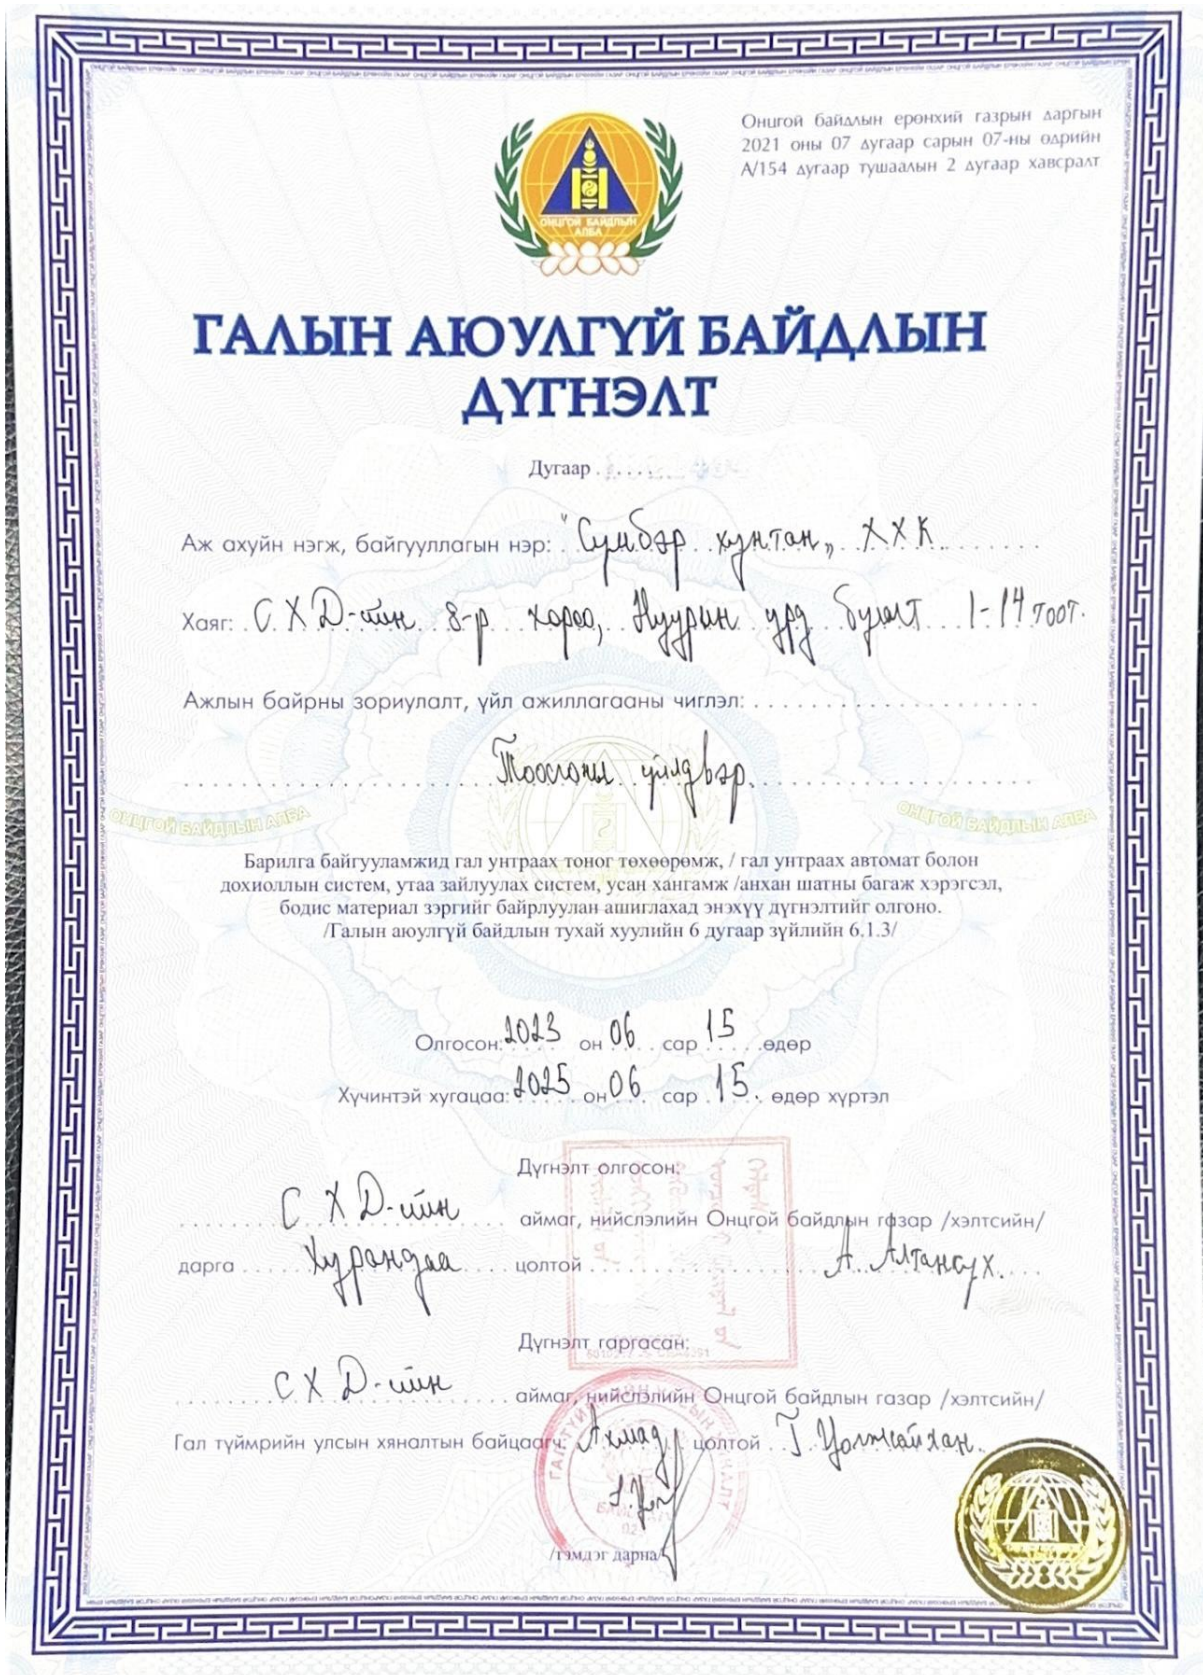 Онцгой байдлын ерөнхий газрын даргын
2021 оны 07 дугаар сарын 07-ны өдрийн
А/154 дугаар тушаалын 2 дугаар хавсралт
ОНЦГОЙ БАЙДЛЫН
АЛБА
ГАЛЫН АЮУЛГҮЙ БАЙДЛЫН
ДҮГНЭЛТ
Дугаар . . . . . . .
Аж ахуйн нэгж, байгууллагын нэр: "Сүмбэр хунтан" ХХК
Хаяг: СХД-ийн 8-р хороо, Нуурын урд булит 1-14 тоот.
Ажлын байрны зориулалт, үйл ажиллагааны чиглэл:
Тоосгоны үйлдвэр.
ОНЦГОЙ БАЙДЛЫН АЛБА ОНЦГОЙ БАЙДЛЫН АЛБА
Барилга байгууламжид гал унтраах тоног төхөөрөмж, / гал унтраах автомат болон
дохиоллын систем, утаа зайлуулах систем, усан хангамж /анхан шатны багаж хэрэгсэл,
бодис материал зэргийг байрлуулан ашиглахад энэхүү дүгнэлтийг олгоно.
/Галын аюулгүй байдлын тухай хуулийн 6 дугаар зүйлийн 6.1.3/
Олгосон: 2023 он 06 сар 15 өдөр
Хүчинтэй хугацаа: 2025 он 06 сар 15. өдөр хүртэл
Дүгнэлт олгосон:
СХД-ийн аймаг, нийслэлийн Онцгой байдлын газар /хэлтсийн/
дарга Хурандаа цолтой А. Алтансүх.
Дүгнэлт гаргасан:
СХД-ийн аймаг, нийслэлийн Онцгой байдлын газар /хэлтсийн/
Гал түймрийн улсын хяналтын байцаагч Ахмад цолтой
/тэмдэг дарна/